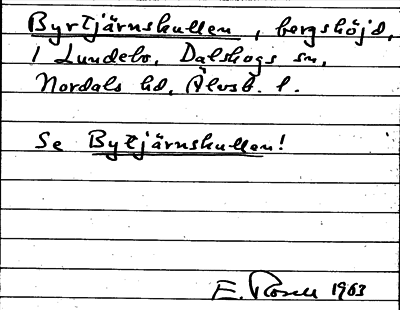 Byrtjärnskullen, bergshöjd,
i Lundebo, Dalskogs sn,
Nordals hd, Älvsb. l.
Se Bytjärnskullen!
E. Rosell 1963